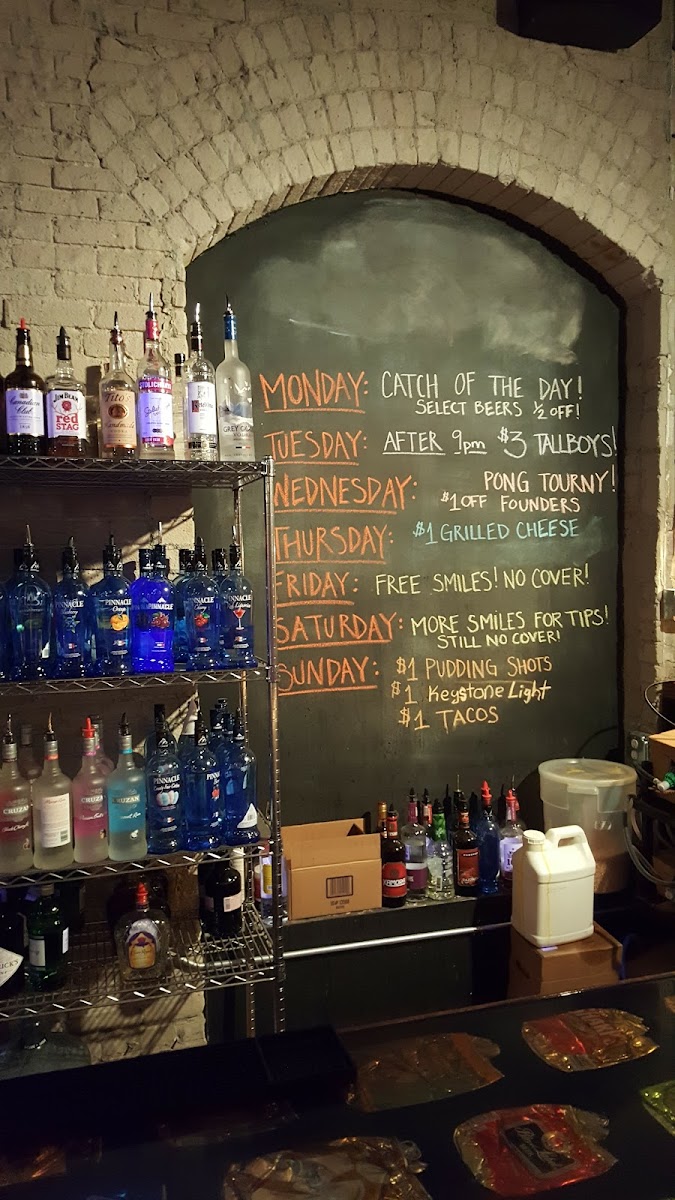 MONDAY: CATCH OF THE DAY!
SELECT BEERS ½ OFF!
TUESDAY: AFTER 9pm $3 TALLBOYS!
WEDNESDAY: PONG TOURNY!
$1 OFF FOUNDERS
THURSDAY: $1 GRILLED CHEESE
FRIDAY: FREE SMILES! NO COVER!
SATURDAY: MORE SMILES FOR TIPS!
STILL NO COVER!
SUNDAY: $1 PUDDING SHOTS
$1 Keystone Light
$1 TACOS
Canadian Club
JIM BEAM
red STAG
Tito's
Handmade
STOLICHNAYA
GREY GOOSE
PINNACLE
PINNACLE
PINNACLE
PINNACLE
Cherry
CRUZAN
CRUZAN
PINNACLE
PINNACLE